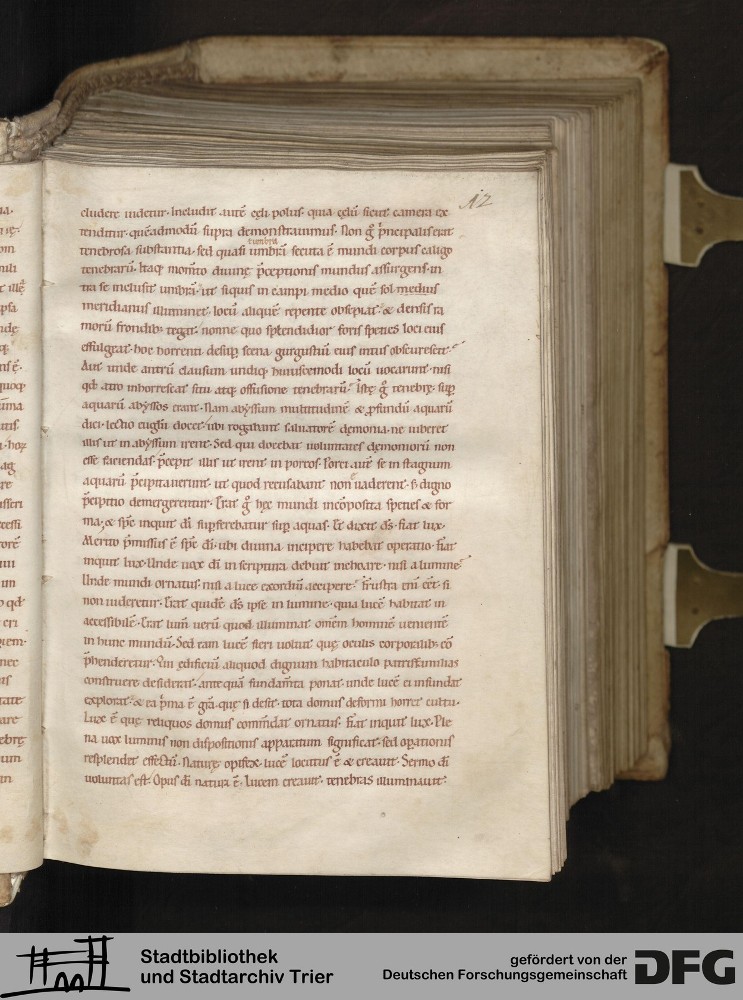 12
cludere uidetur. Includit autē cęli polus. quia cęlū sicut camera ex
tenditur. quēadmodū supra demonstrauimus. Non g̊ p̄ncipalis erat
umbra
tenebrosa substantia. sed quasi umbrā secuta ē mundi corpus caligo
tenebrarū. Itaq; momīto diuinę p̄ceptionis mundus assurgens in
tra se inclusit umbrā. ut siquis in campi medio quē sol medius
meridianus illuminet. locū aliquē repente obsepiat. & densis ra
morū frondib; tegat. nonne quo splendidior foris species loci eius
effulgeat. hoc horrenti desup̱ scena. gurgustiū eius intus obscurescit.
Aut unde antrū clausum undiq; huiuscemodi locū uocarunt. nisi
qđ atro inhorrescat situ atq; offusione tenebrarū. Istę g̊ tenebrę sup̱
aquarū abyssos erant. Nam abyssum multitudinē & p̱fundū aquarū
dici. lectio eug̅lii docet. ubi rogabant saluatorē dęmonia. ne iuberet
illis ut in abyssum irent. Sed qui docebat uoluntates dęmoniorū non
esse faciendas. p̄cepit illis ut irent in porcos. Porci autē se in stagnum
aquarū p̄cipitauerunt. ut quod recusabant non euaderent. s; digno
p̄cipitio demergerentur. Erat g̊ hęc mundi incōposita species & for
ma; & sp̄c inquit dī sup̱ferebatur sup̱ aquas. Et dixit ds̄. fiat lux.
Merito p̄missus ē sp̄c dī. ubi diuina incipere habebat operatio. Fiat
inquit lux. Unde uox dī in scriptura debuit inchoare. nisi a lumine.
Unde mundi ornatus. nisi a luce exordiū accipere. Frustra eni̅ eēt. si
non uideretur. Erat quidē ds̄ ipse in lumine. quia lucē habitat in
accessibilē. Erat lum̄ uerū quod illuminat om̄em hominē uenientē
in hunc mundū. Sed eam lucē fieri uoluit. quę oculis corporalib; cō
p̄henderetur. Qui ędificiū aliquod dignum habitaculo patrisfamilias
construere desiderat. ante quā fundam̄ta ponat. unde lucē ei infundat
explorat. & ea p̄ma ē gr̄a. quę si desit. tota domus deformi horret cultu.
Lux ē quę reliquos domus com̄dat ornatus. Fiat inquit lux. Ple
na uox luminis non dispositionis apparatum significat. sed op̱ationis
resplendet effectū. Naturę opifex. lucē locutus ē & creauit. Sermo dī
uoluntas est. Opus dī natura ē. Lucem creauit. tenebras illuminauit.
Stadtbibliothek
und Stadtarchiv Trier
gefördert von der
Deutschen Forschungsgemeinschaft
DFG